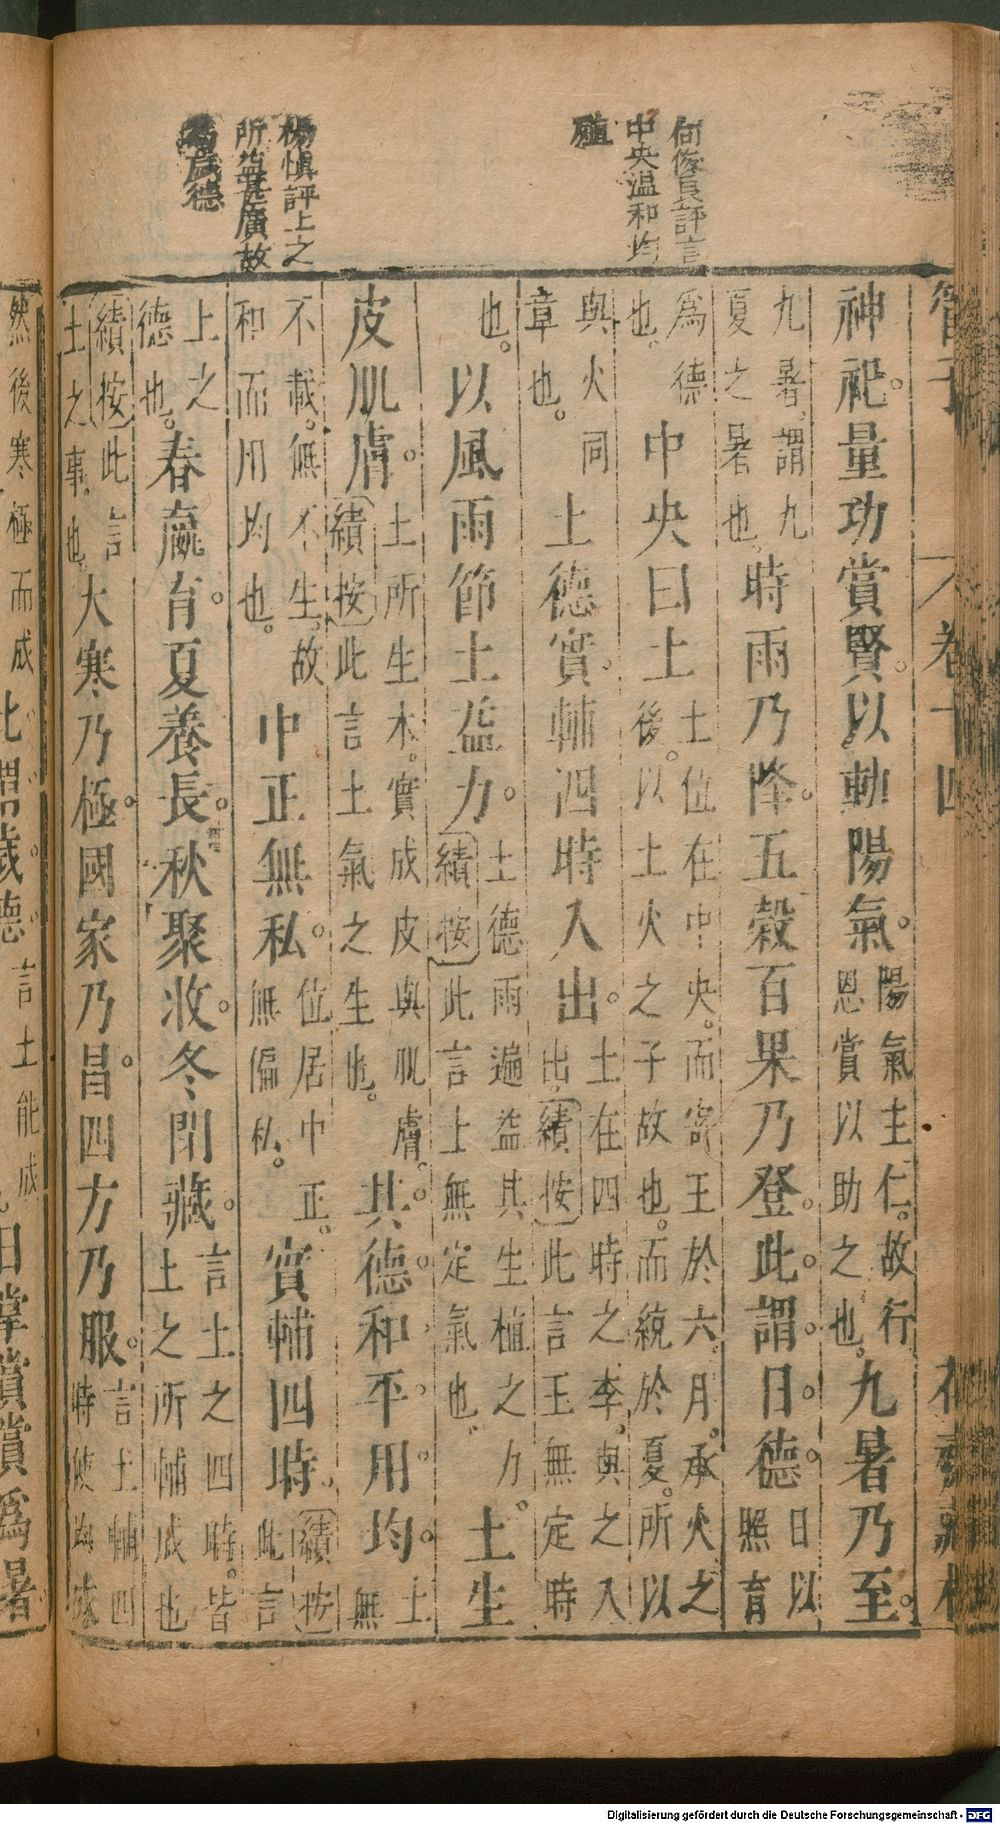 管子 卷十四 花齋藏板
何俊良評言
中央温和均
殖
楊慎評上之
所益甚廣故
爲歲德
神祀。量功賞賢。以動陽氣。陽氣主仁。故行恩賞以助之也。九暑乃至。
九暑。謂九夏之暑也。時雨乃降。五穀百果乃登。此謂日德。日以照育
爲德也。中央曰土土位在中央。而寄王於六月。承火之後。以土火之子故也。而統於夏。所以
與火同章也。土德實。輔四時入出。土在四時之季。與之入出。續按此言王無定時
也。以風雨節土益力。土德雨遍益其生植之力。續按此言土無定氣也。土生
皮肌膚。土所生木。實成皮與肌膚。續按此言土氣之生也。其德和平用均。土無
不載。無不生。故和而用均也。中正無私。位居中正。無偏私。實輔四時。續按此言
土之德也。春嬴育。夏養長。秋聚收。冬閉藏。言土之四時。皆土之所輔成也
續按此言土之事也。大寒乃極。國家乃昌。四方乃服。言土輔四時候
然後寒極而成 此謂歲德。言土能成 日掌賞賞爲暑
Digitalisierung gefördert durch die Deutsche Forschungsgemeinschaft - DFG